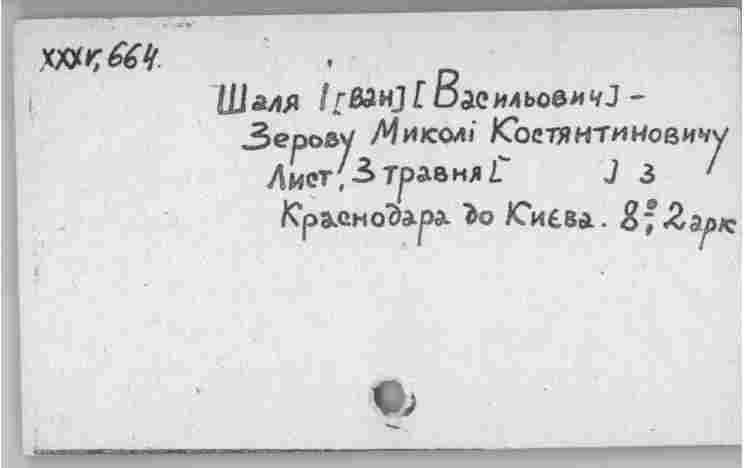 XXXV, 664.
Шаля І[ван] [Васильович] -
Зерову Миколі Костянтиновичу
Лист. 3 травня [ ] З
Краснодара до Києва. 8º; 2 арк